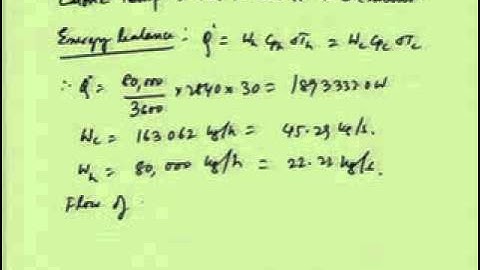 Energy balance : Q̇ = Wₕ Cpₕ σTₕ = W꜀ Cp꜀ σT꜀
∴ Q̇ = 80,000/3600 × 2840 × 30 = 1893332 W
W꜀ = 163062 kg/h = 45.29 kg/s.
Wₕ = 80,000 kg/h = 22.22 kg/s.
Flow of